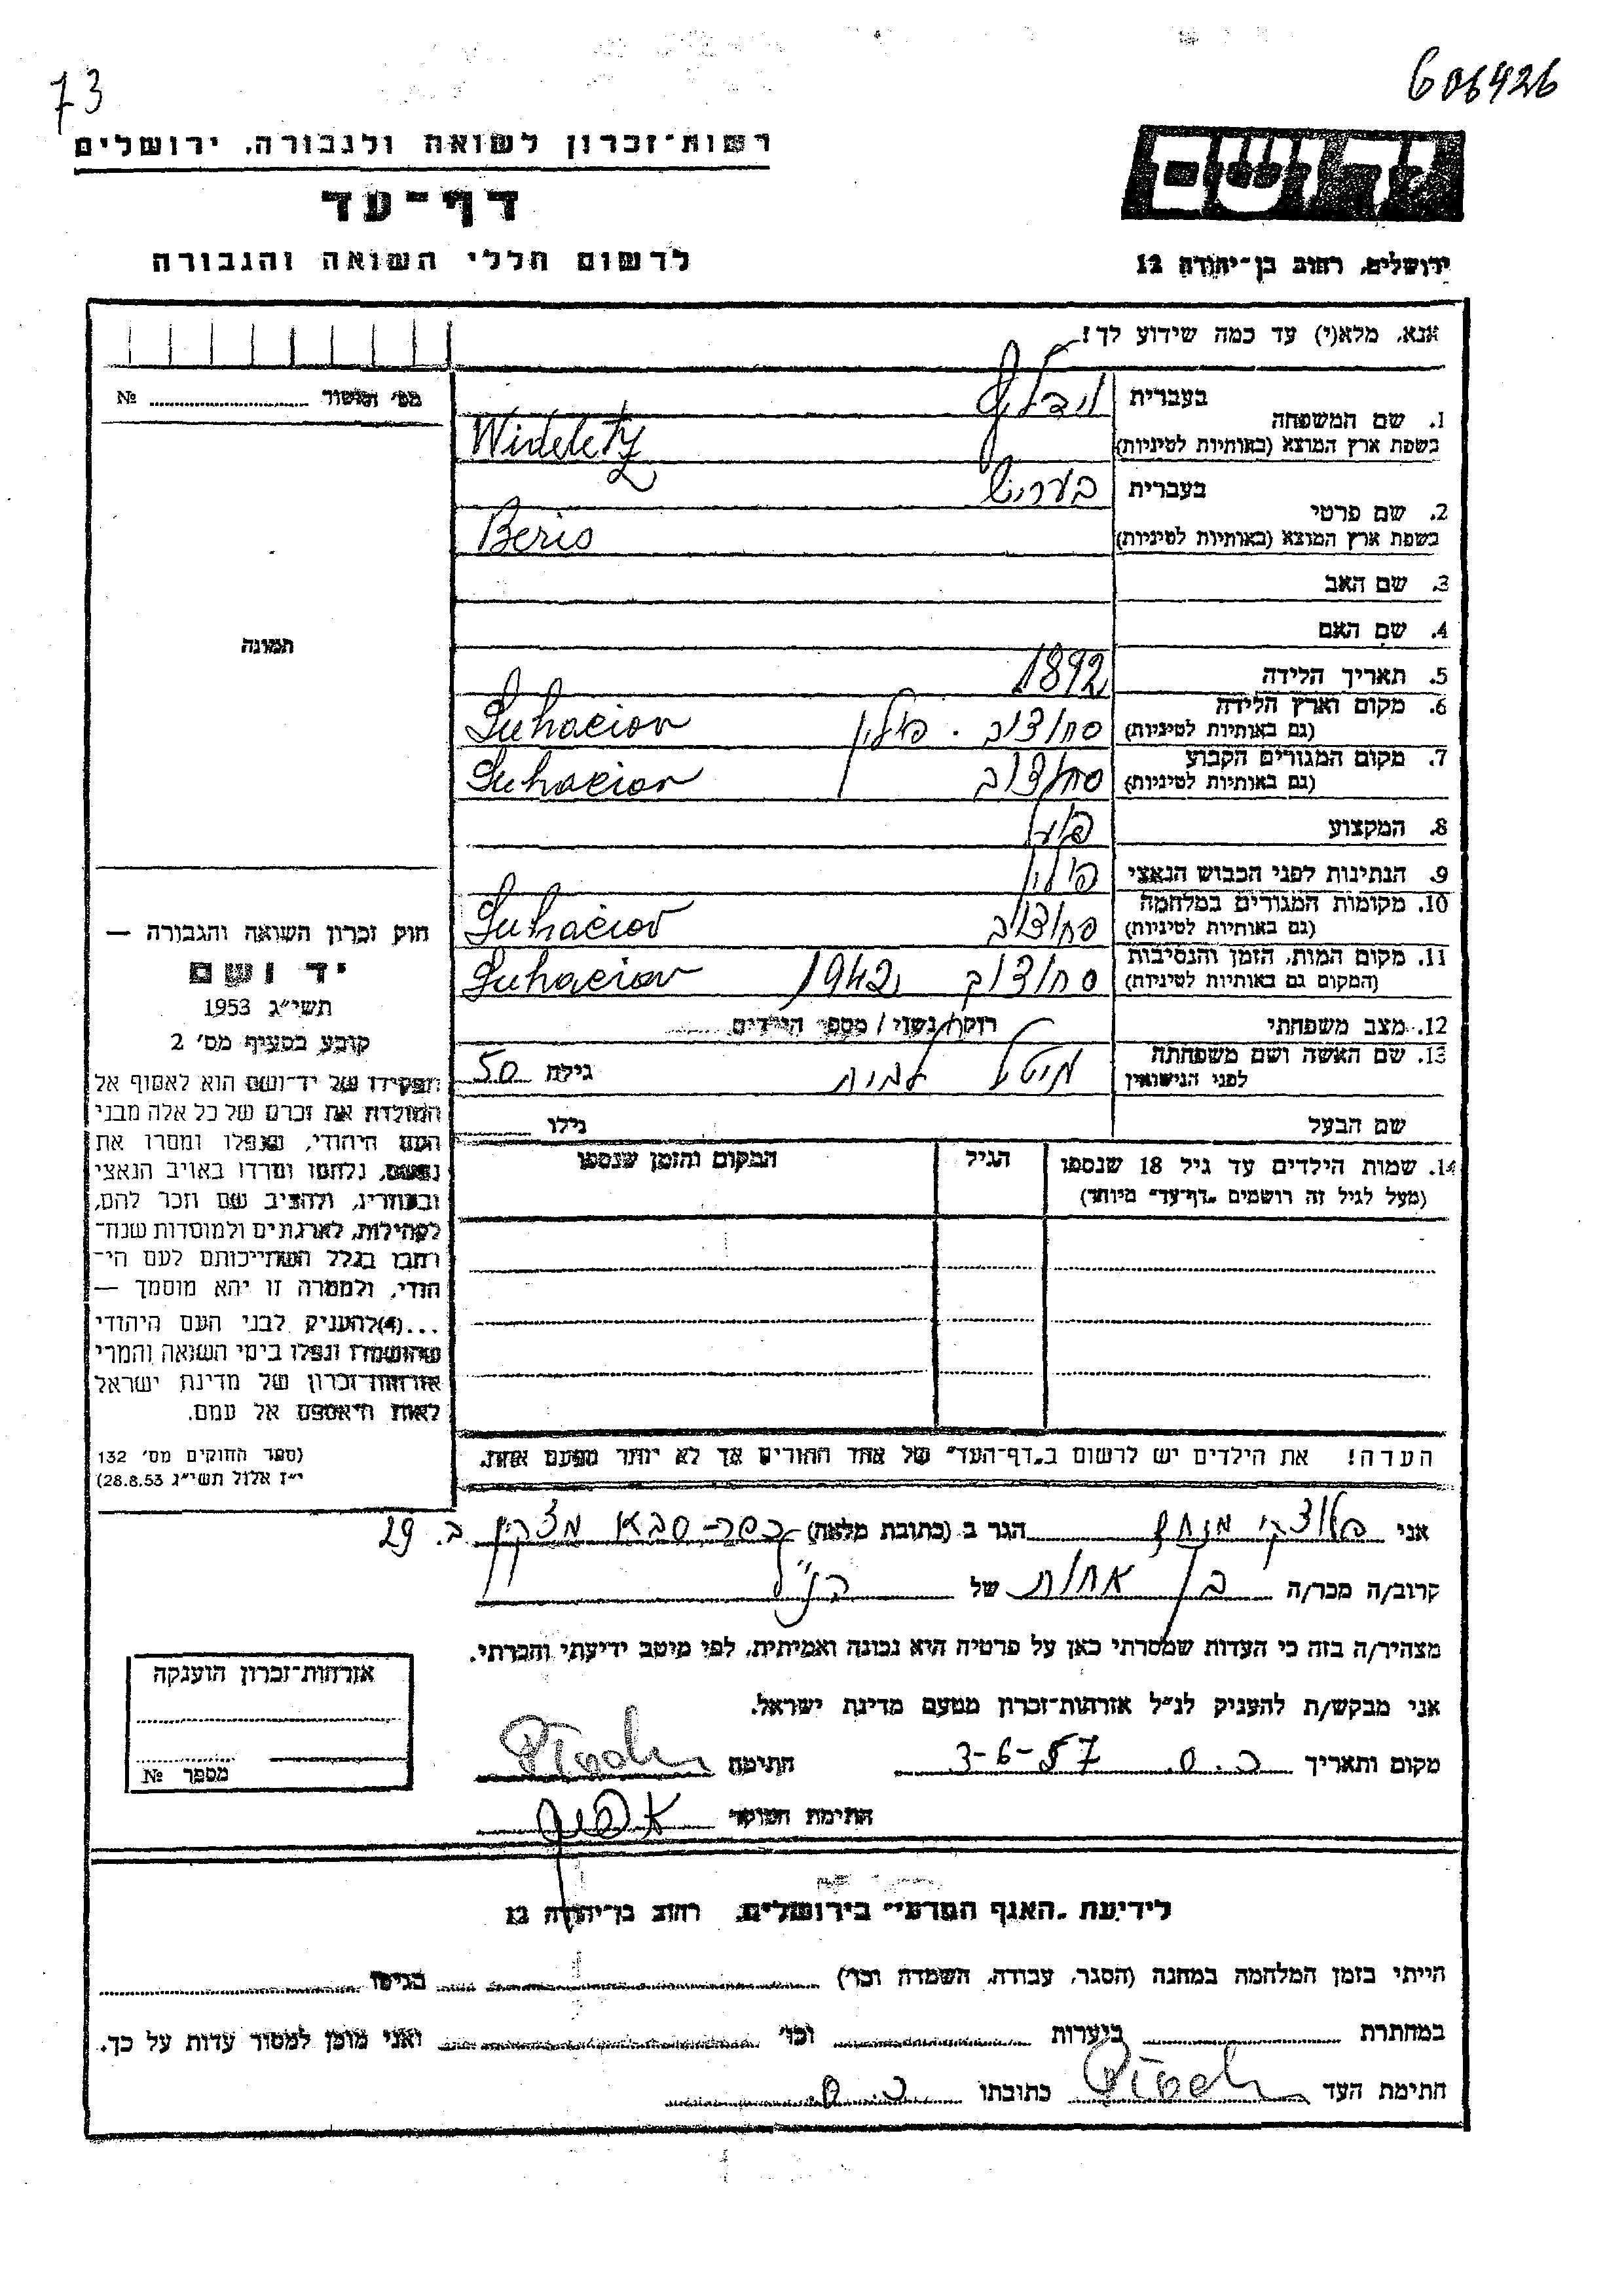 73
606426
רשות־זכרון לשואה ולגבורה, ירושלים
דף־עד
לרשום חללי השואה והגבורה
ידושם
ירושלים, רחוב בן־יהודה 12
אנא, מלא(י) עד כמה שידוע לך!
מס' תושור № ........
1. שם המשפחה
בעברית
בשפת ארץ המוצא (באותיות לטיניות)
Wideletz
2. שם פרטי
בעברית בעריש
בשפת ארץ המוצא (באותיות לטיניות)
Beris
3. שם האב
4. שם האם
תמונה
5. תאריך הלידה 1892
6. מקום וארץ הלידה
(גם באותיות לטיניות) סחוצ'וב . פולין Suhaciov
7. מקום המגורים הקבוע
(גם באותיות לטיניות) סחוצ'וב Suhaciov
8. המקצוע פועל
9. הנתינות לפני הכבוש הנאצי פולין
10. מקומות המגורים במלחמה
(גם באותיות לטיניות) סחוצ'וב Suhaciov
11. מקום המות, הזמן והנסיבות
(המקום גם באותיות לטיניות) סחוצ'וב 1942 Suhaciov
12. מצב משפחתי רווק / נשוי / מספר הילדים
13. שם האשה ושם משפחתה
לפני הנישואין גילה 50
שם הבעל גילו
14. שמות הילדים עד גיל 18 שנספו
(מעל לגיל זה רושמים „דף־עד" מיוחד)
הגיל
המקום והזמן שנספו
חוק זכרון השואה והגבורה —
יד ושם
תשי"ג 1953
קובע בסעיף מס' 2
תפקידו של יד־ושם הוא לאסוף אל
המולדת את זכרם של כל אלה מבני
העם היהודי, שנפלו ומסרו את
נפשם, נלחמו ומרדו באויב הנאצי
ובעוזריו, ולהציב שם וזכר להם,
לקהילות, לארגונים ולמוסדות שנח־
רבו בגלל השתייכותם לעם הי־
הודי, ולמטרה זו יהא מוסמך —
...(4) להעניק לבני העם היהודי
שהושמדו ונפלו בימי השואה והמרי
אזרחות־זכרון של מדינת ישראל
לאות היאספם אל עמם.
(ספר החוקים מס' 132
י"ז אלול תשי"ג 28.8.53)
הערה! את הילדים יש לרשום ב„דף־העד" של אחד ההורים אך לא יותר מפעם אחת.
אני הגר ב (כתובת מלאה) כפר-סבא ב. 29
קרוב/ה מכר/ה בן אחות של הנ"ל
מצהיר/ה בזה כי העדות שמסרתי כאן על פרטיה היא נכונה ואמיתית, לפי מיטב ידיעתי והכרתי.
אני מבקש/ת להעניק לנ"ל אזרחות־זכרון מטעם מדינת ישראל.
מקום ותאריך כ.ס. 3-6-57 חתימה
חתימת הפוקד
אזרחות־זכרון הוענקה
מספר №
לידיעת „האגף המדעי" בירושלים, רחוב בן־יהודה 12
הייתי בזמן המלחמה במחנה (הסגר, עבודה, השמדה וכו') בגיטו
במחתרת ביערות וכו' ואני מוכן למסור עדות על כך.
חתימת העד כתובתו כ.ס.